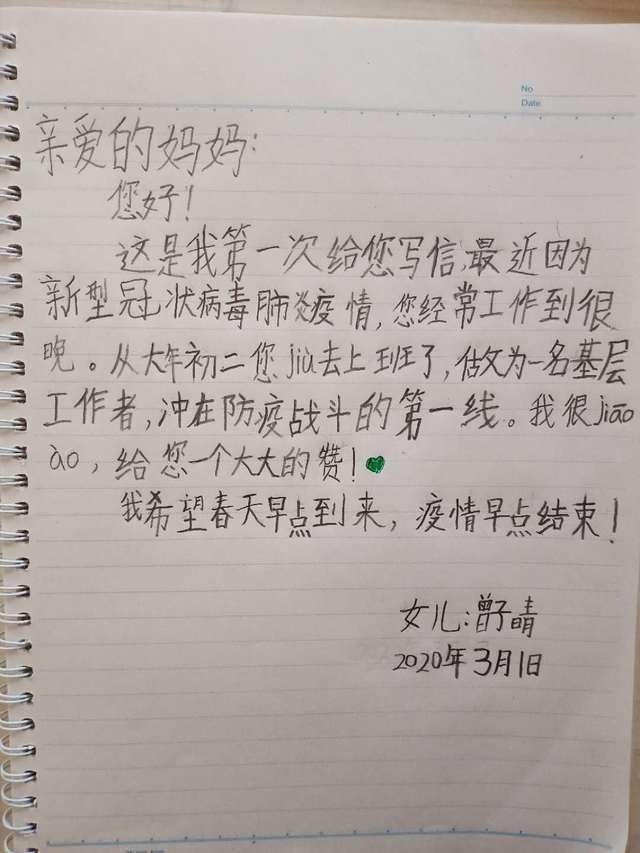 No
Date
亲爱的妈妈:
您好!
这是我第一次给您写信,最近因为
新型冠状病毒肺炎疫情,您经常工作到很
晚。从大年初二您jiù去上班了,做为一名基层
工作者,冲在防疫战斗的第一线。我很jiāo
ào,给您一个大大的赞!
我希望春天早点到来,疫情早点结束!
女儿:曾子晴
2020年3月1日